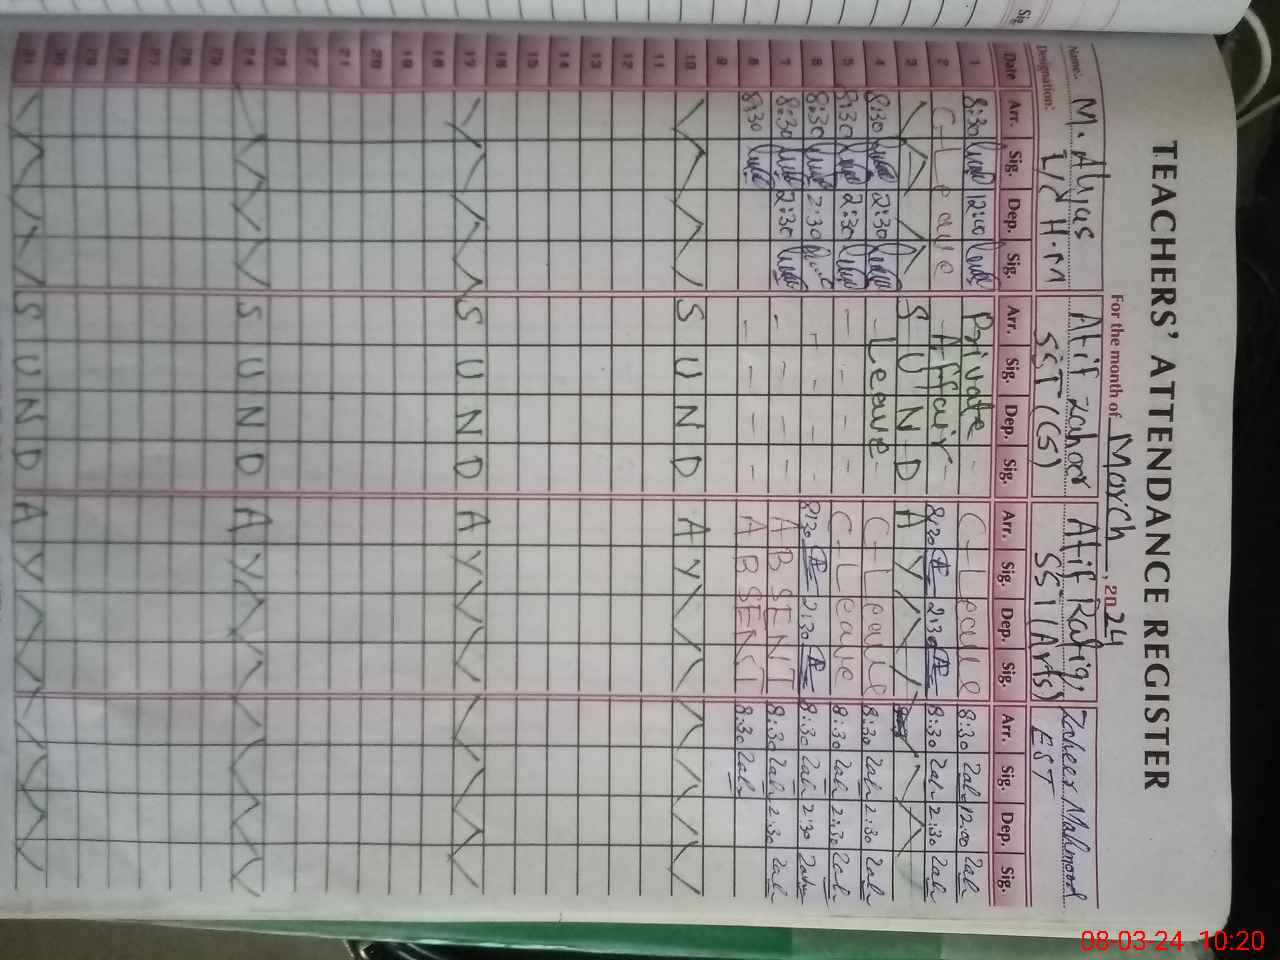 TEACHERS' ATTENDANCE REGISTER
For the month of March, 2024
Name: M. Alyas Atif Zahoor Atif Rafiq. Zaheer Mahmood
Designation: I/C H.M SST (CS) SST (Arts) EST
Date Arr. Sig. Dep. Sig. Arr. Sig. Dep. Sig. Arr. Sig. Dep. Sig. Arr. Sig. Dep. Sig.
1 8:30 12:00 Private - C-Leave 8:30 Zah 12:00 Zah
2 C-Leave - Affair - 8:30 2:30 8:30 Zah 2:30 Zah
3 SUNDAY
4 8:30 2:30 - Leave - C-Leave 8:30 Zah 2:30 Zah
5 8:30 2:30 - - - - C-Leave 8:30 Zah 2:30 Zah
6 8:30 2:30 - - - - 8:30 2:30 8:30 Zah 2:30 Zah
7 8:30 2:30 - - - - ABSENT 8:30 Zah 2:30 Zah
8 8:30 - - - - ABSENT 8:30 Zah
9
10 SUNDAY
11
12
13
14
15
16
17 SUNDAY
18
19
20
21
22
23
24 SUNDAY
25
26
27
28
29
30
31 SUNDAY
Sig.
08-03-24 10:20